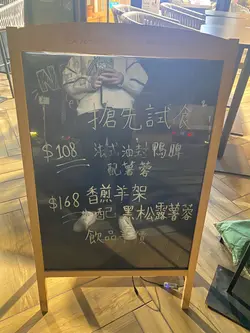 搶先試食
$108 法式油封鴨脾
配薯蓉
$168 香煎羊架
配黑松露薯蓉
飲品